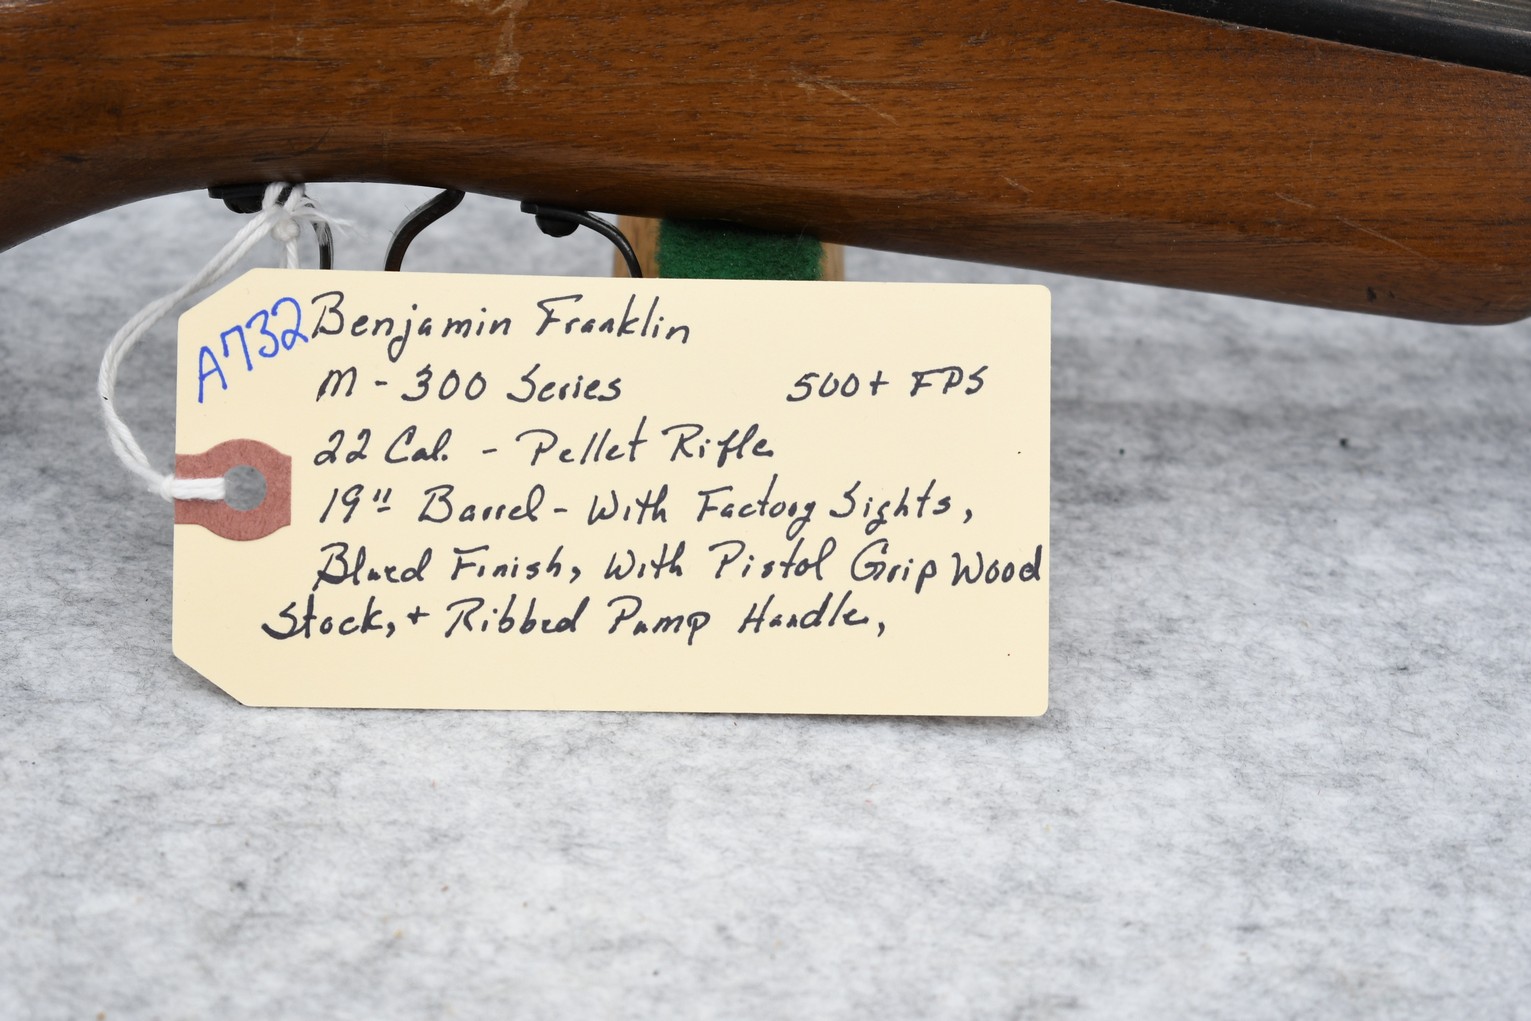 A732
Benjamin Franklin
M - 300 Series 500+ FPS
22 Cal. - Pellet Rifle
19" Barrel - With Factory Sights,
Blued Finish, With Pistol Grip Wood
Stock, + Ribbed Pump Handle,